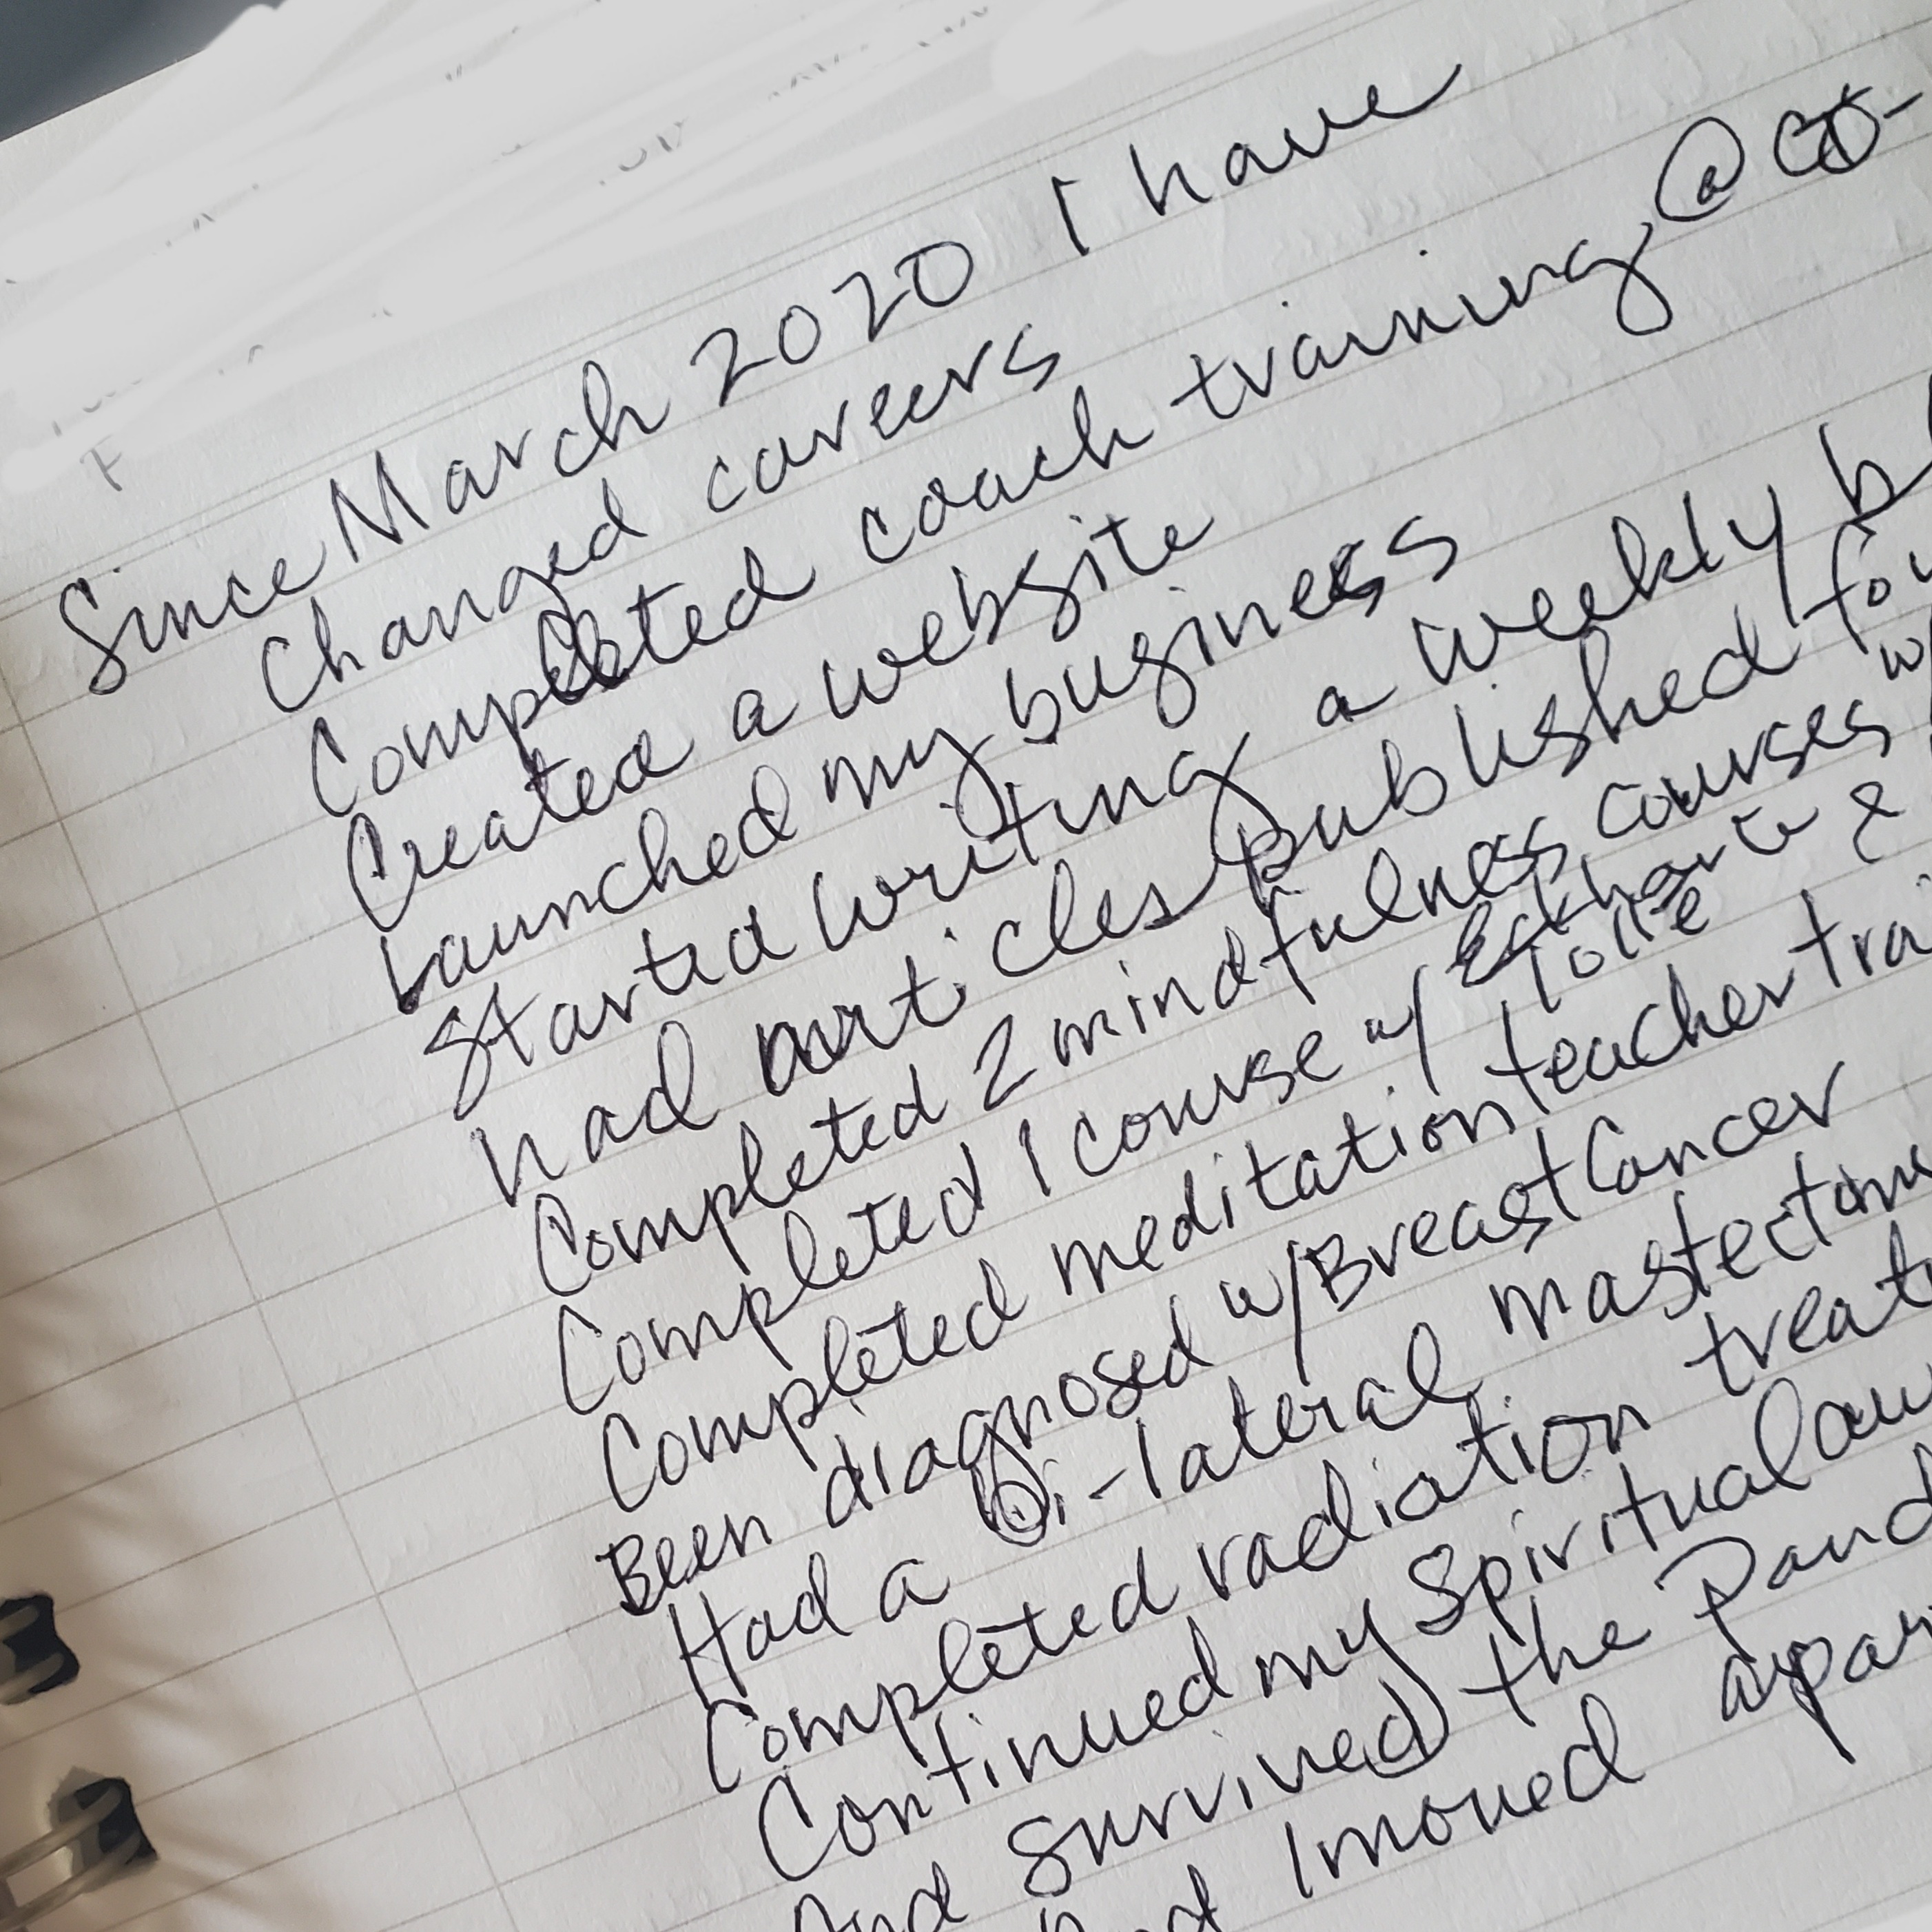 Since March 2020 I have
Changed careers
Completed coach training @ CO-
Created a website
Launched my business
Started writing a weekly bl
had articles published fou
Completed 2 mindfulness courses w/
Completed 1 course w/ Eckharte &
Tolle
Completed meditation teacher trai
Been diagnosed w/ Breast Cancer
Had a Bi-lateral mastectom
Completed radiation treat
Continued my Spiritual
And survived the Pand
I moved apar